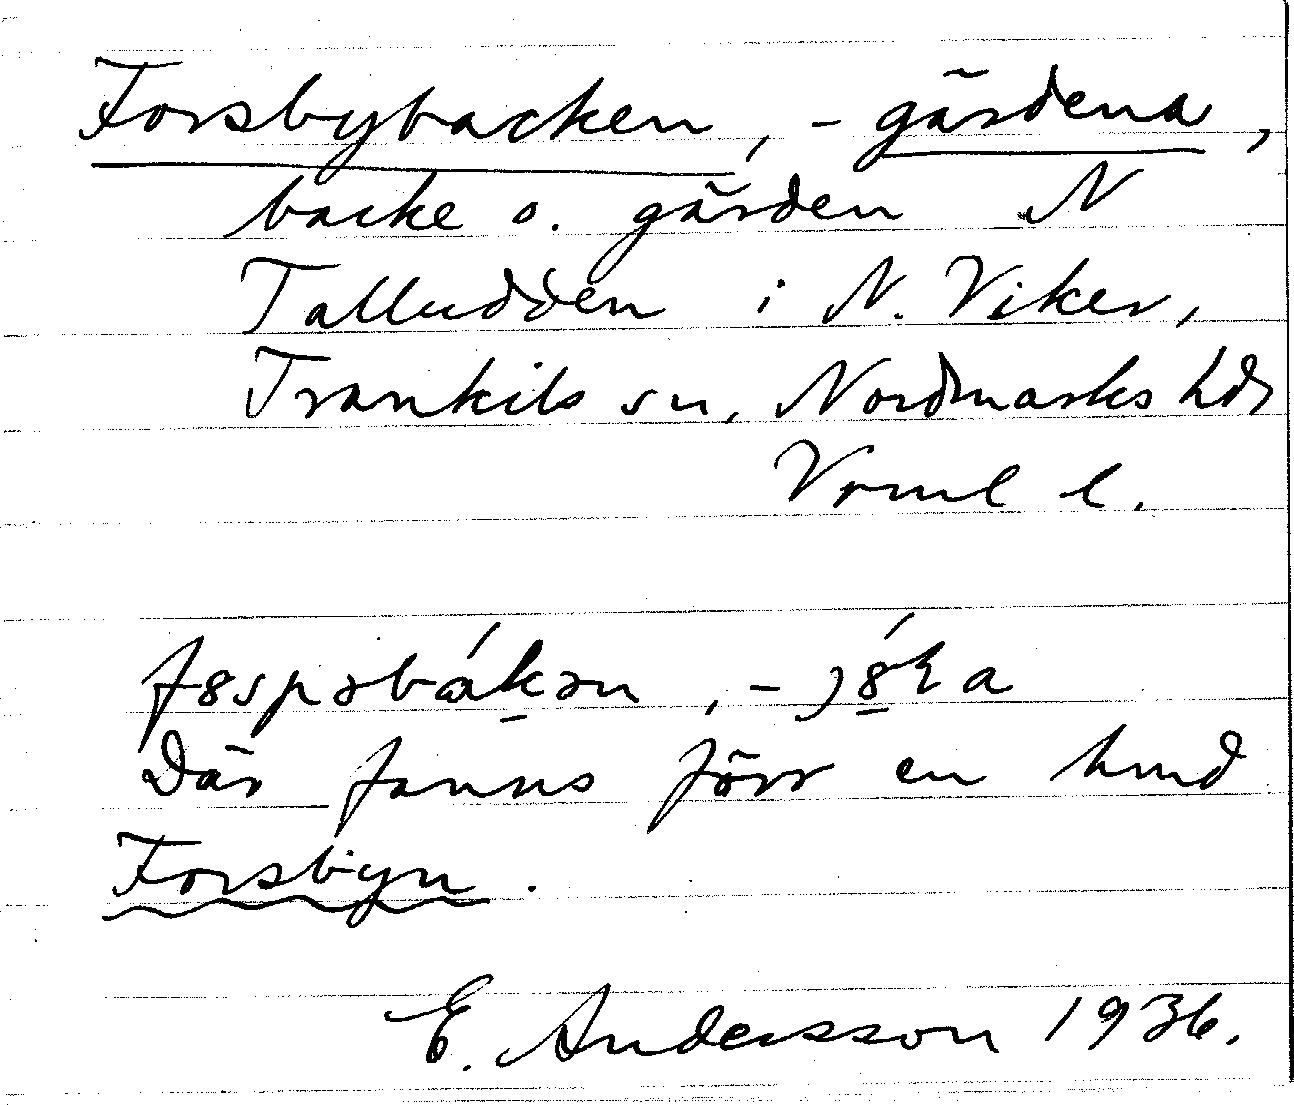 Forsbybacken, -gärdena,
backe o. gärden N
Talludden i N. Viker,
Trankils sn, Nordmarks hd,
Vrml l.
Där fanns förr en hund
Forsbyn.
E. Andersson 1936.